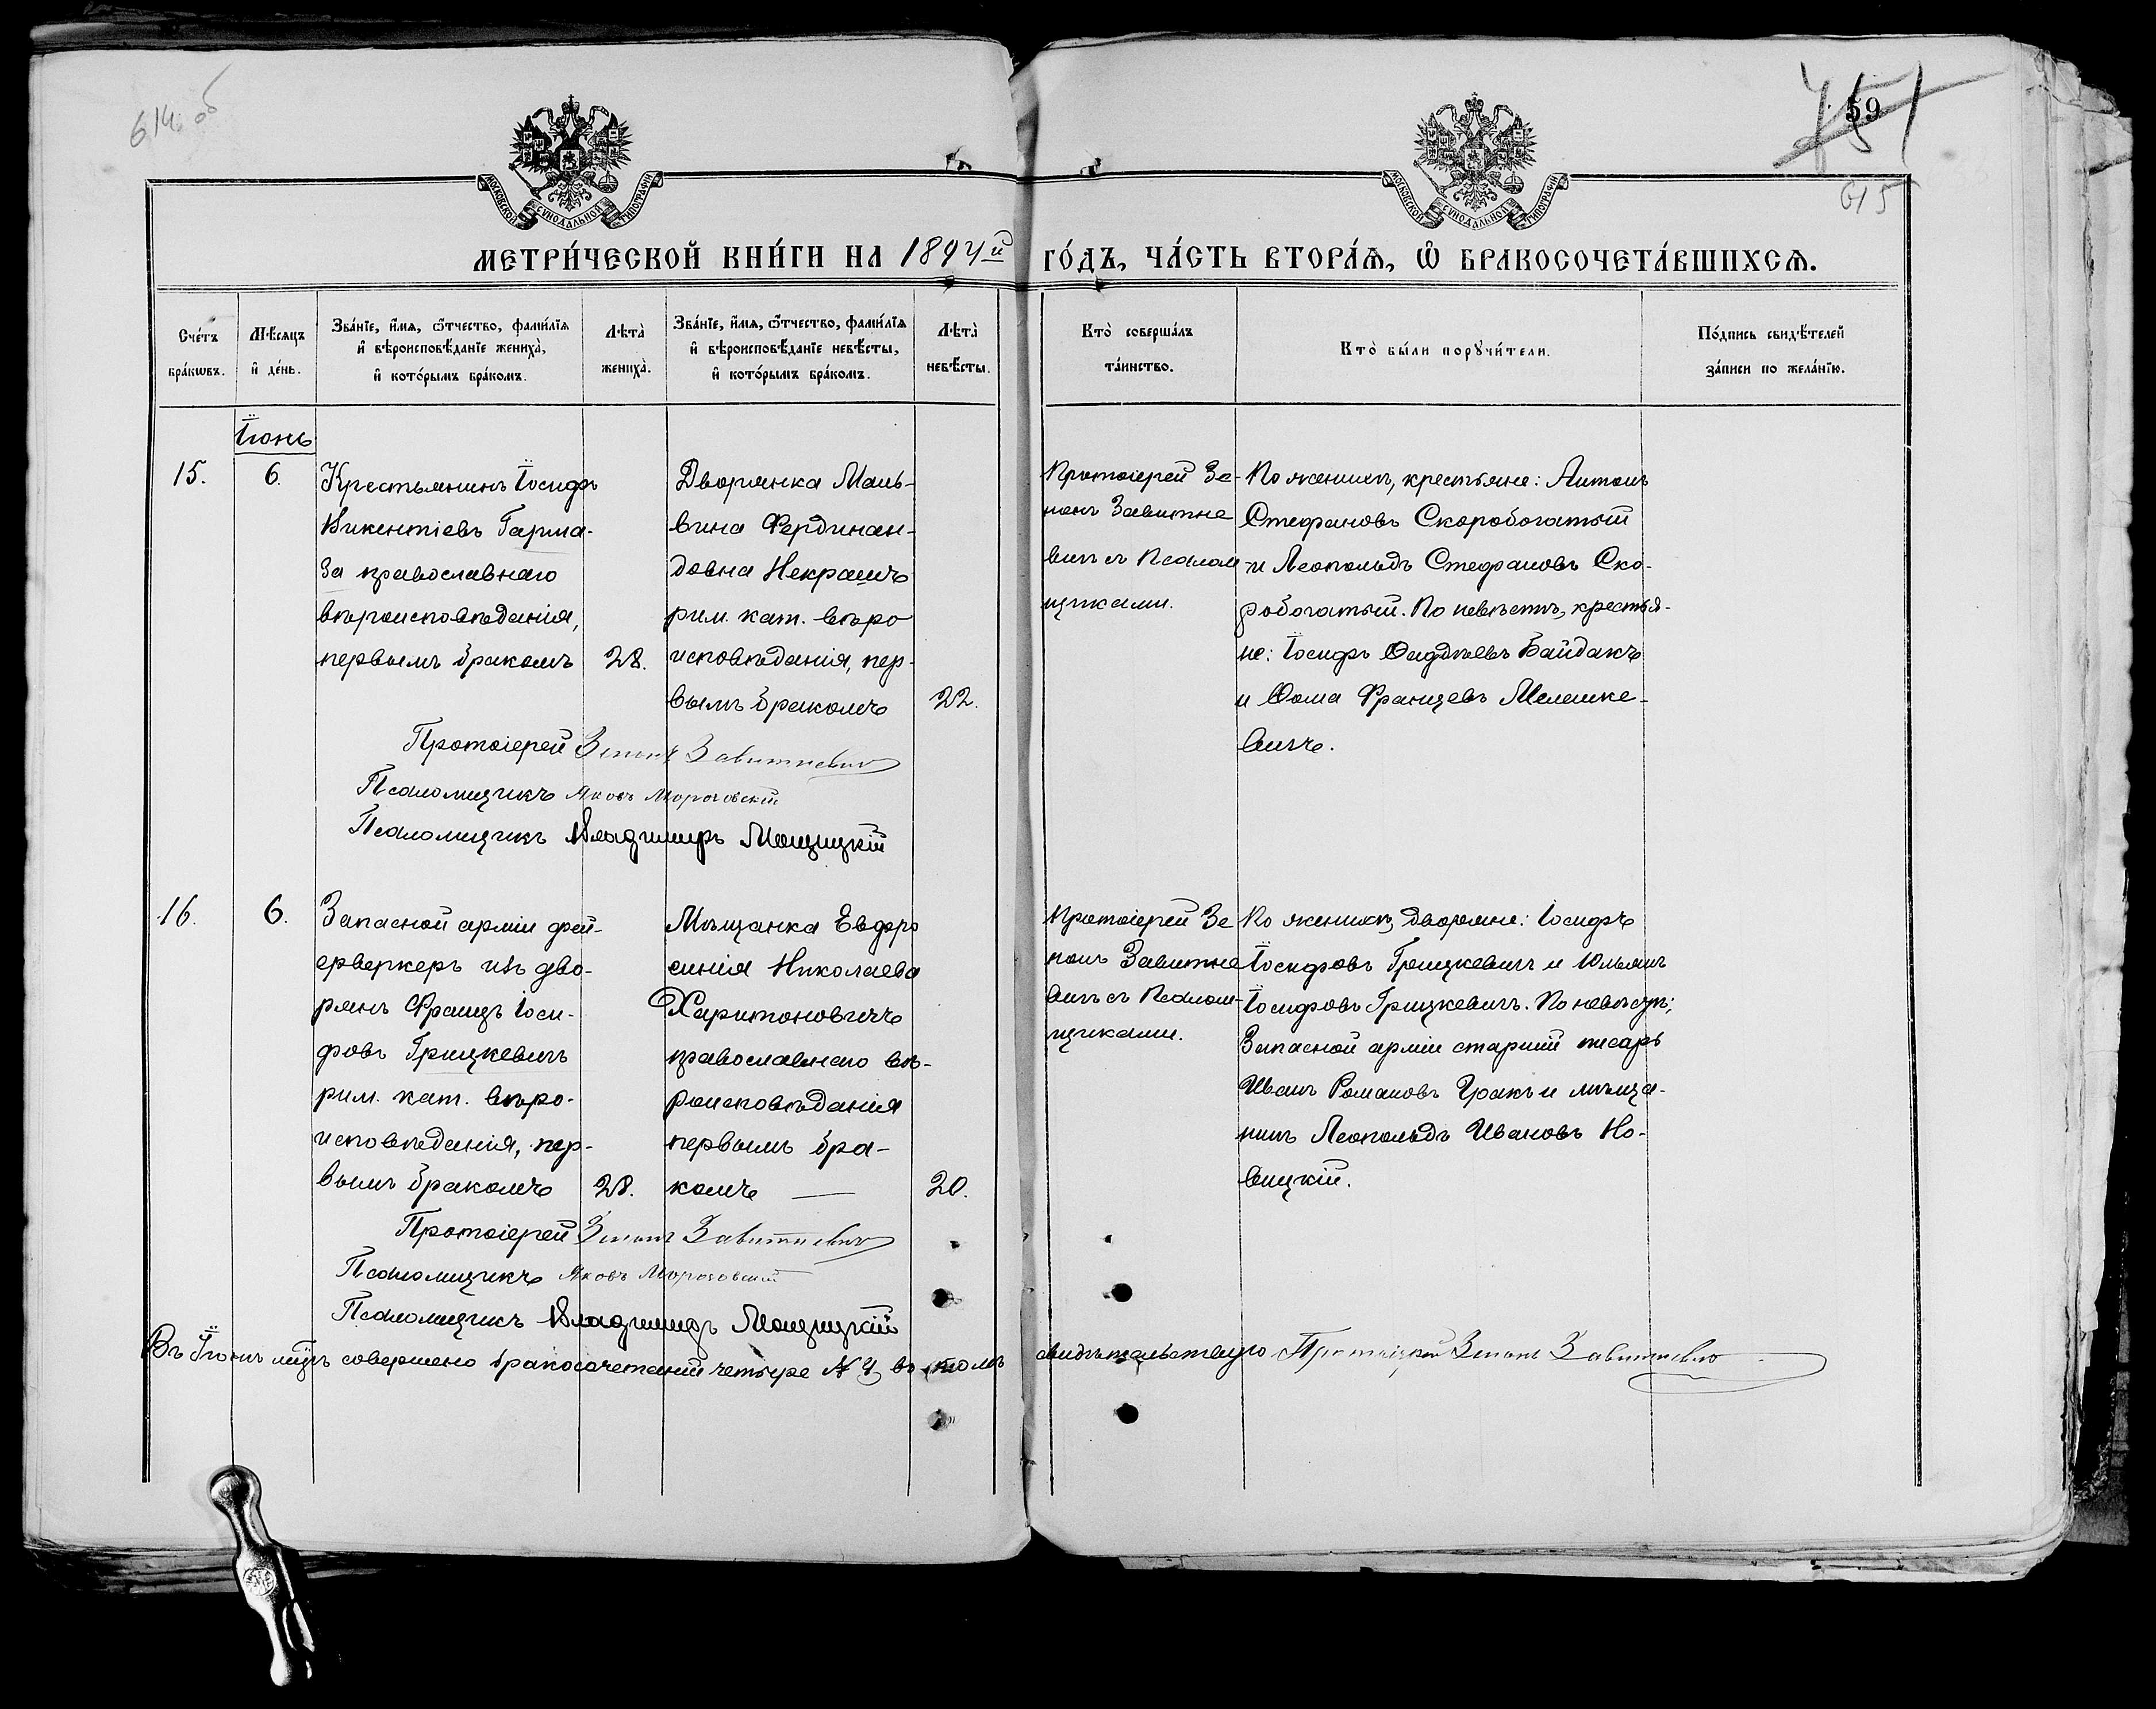 614 об
59
615
МОСКОВСКОЙ СѴНОДАЛЬНОЙ ТИПОГРАФІИ
МОСКОВСКОЙ СѴНОДАЛЬНОЙ ТИПОГРАФІИ
МЕТРИ́ЧЕСКОЙ КНИ́ГИ НА 1894й ГО́ДЪ, ЧА́СТЬ ВТОРА́Ѧ, Ѽ БРАКОСОЧЕТА́ВШИХСѦ.
Сче́тъ бра́кѡвъ.
Мѣ́сяцъ и҆ де́нь.
Зва́нїе, и҆́мя, ѻ҆́тчество, фами́лїя
и҆ вѣроисповѣ́данїе жениха̀,
и҆ кото́рымъ бра́комъ.
Лѣта̀ жениха̀.
Зва́нїе, и҆́мя, ѻ҆́тчество, фами́лїя
и҆ вѣроисповѣ́данїе невѣ́сты,
и҆ кото́рымъ бра́комъ.
Лѣта̀ невѣ́сты.
Кто̀ соверша́лъ
та́инство.
Кто̀ бы́ли порꙋчи́тели.
По́дпись свидѣ́телей
за́писи по жела́нїю.
Іюнь
15.
6.
Крестьянинъ Іосифъ
Викентіевъ Гарма-
за православнаго
вѣроисповѣданія,
первымъ бракомъ
28.
Дворянка Маль-
вина Фердинан-
довна Некрашъ
рим. кат. вѣро
исповѣданія, пер-
вымъ бракомъ
22.
Протоіерей Зе-
нонъ Завитне
вичъ съ Псалом
щиками.
По женихѣ, крестьяне: Антонъ
Стефановъ Скоробогатый
и Леопольдъ Стефановъ Ско-
робогатый. По невѣстѣ, крестья-
не: Іосифъ Ѳаддѣевъ Байдакъ
и Ѳома Францевъ Мелешке-
вичъ.
Протоіерей Зенонъ Завитневичъ
Псаломщикъ Яковъ Морозовскій
Псаломщикъ Владимиръ Мощицкій
16.
6.
Запасной арміи фей-
ерверкеръ изъ дво-
рянъ Францъ Іоси-
фовъ Грицкевичъ
рим. кат. вѣро-
исповѣданія, пер-
вымъ бракомъ
28.
Мѣщанка Евфро
синія Николаева
Харитоновичъ
православнаго вѣ-
роисповѣданія
первымъ бра-
комъ —
20.
Протоіерей Зе
нонъ Завитне
вичъ съ Псалом-
щиками.
По женихѣ, дворяне: Іосифъ
Іосифовъ Грицкевичъ и Юльянъ
Іосифовъ Грицкевичъ. По невѣстѣ:
Запасной арміи старшій писарь
Иванъ Романовъ Гракъ и мѣща-
нинъ Леопольдъ Ивановъ Но-
вицкій.
Протоіерей Зенонъ Завитневичъ
Псаломщикъ Яковъ Морозовскій
Псаломщикъ Владимиръ Мощицкій
Въ Іюнѣ мцѣ совершено бракосочетаній четыре № 4, въ томъ свидѣтельствую Протоіерей Зенонъ Завитневичъ